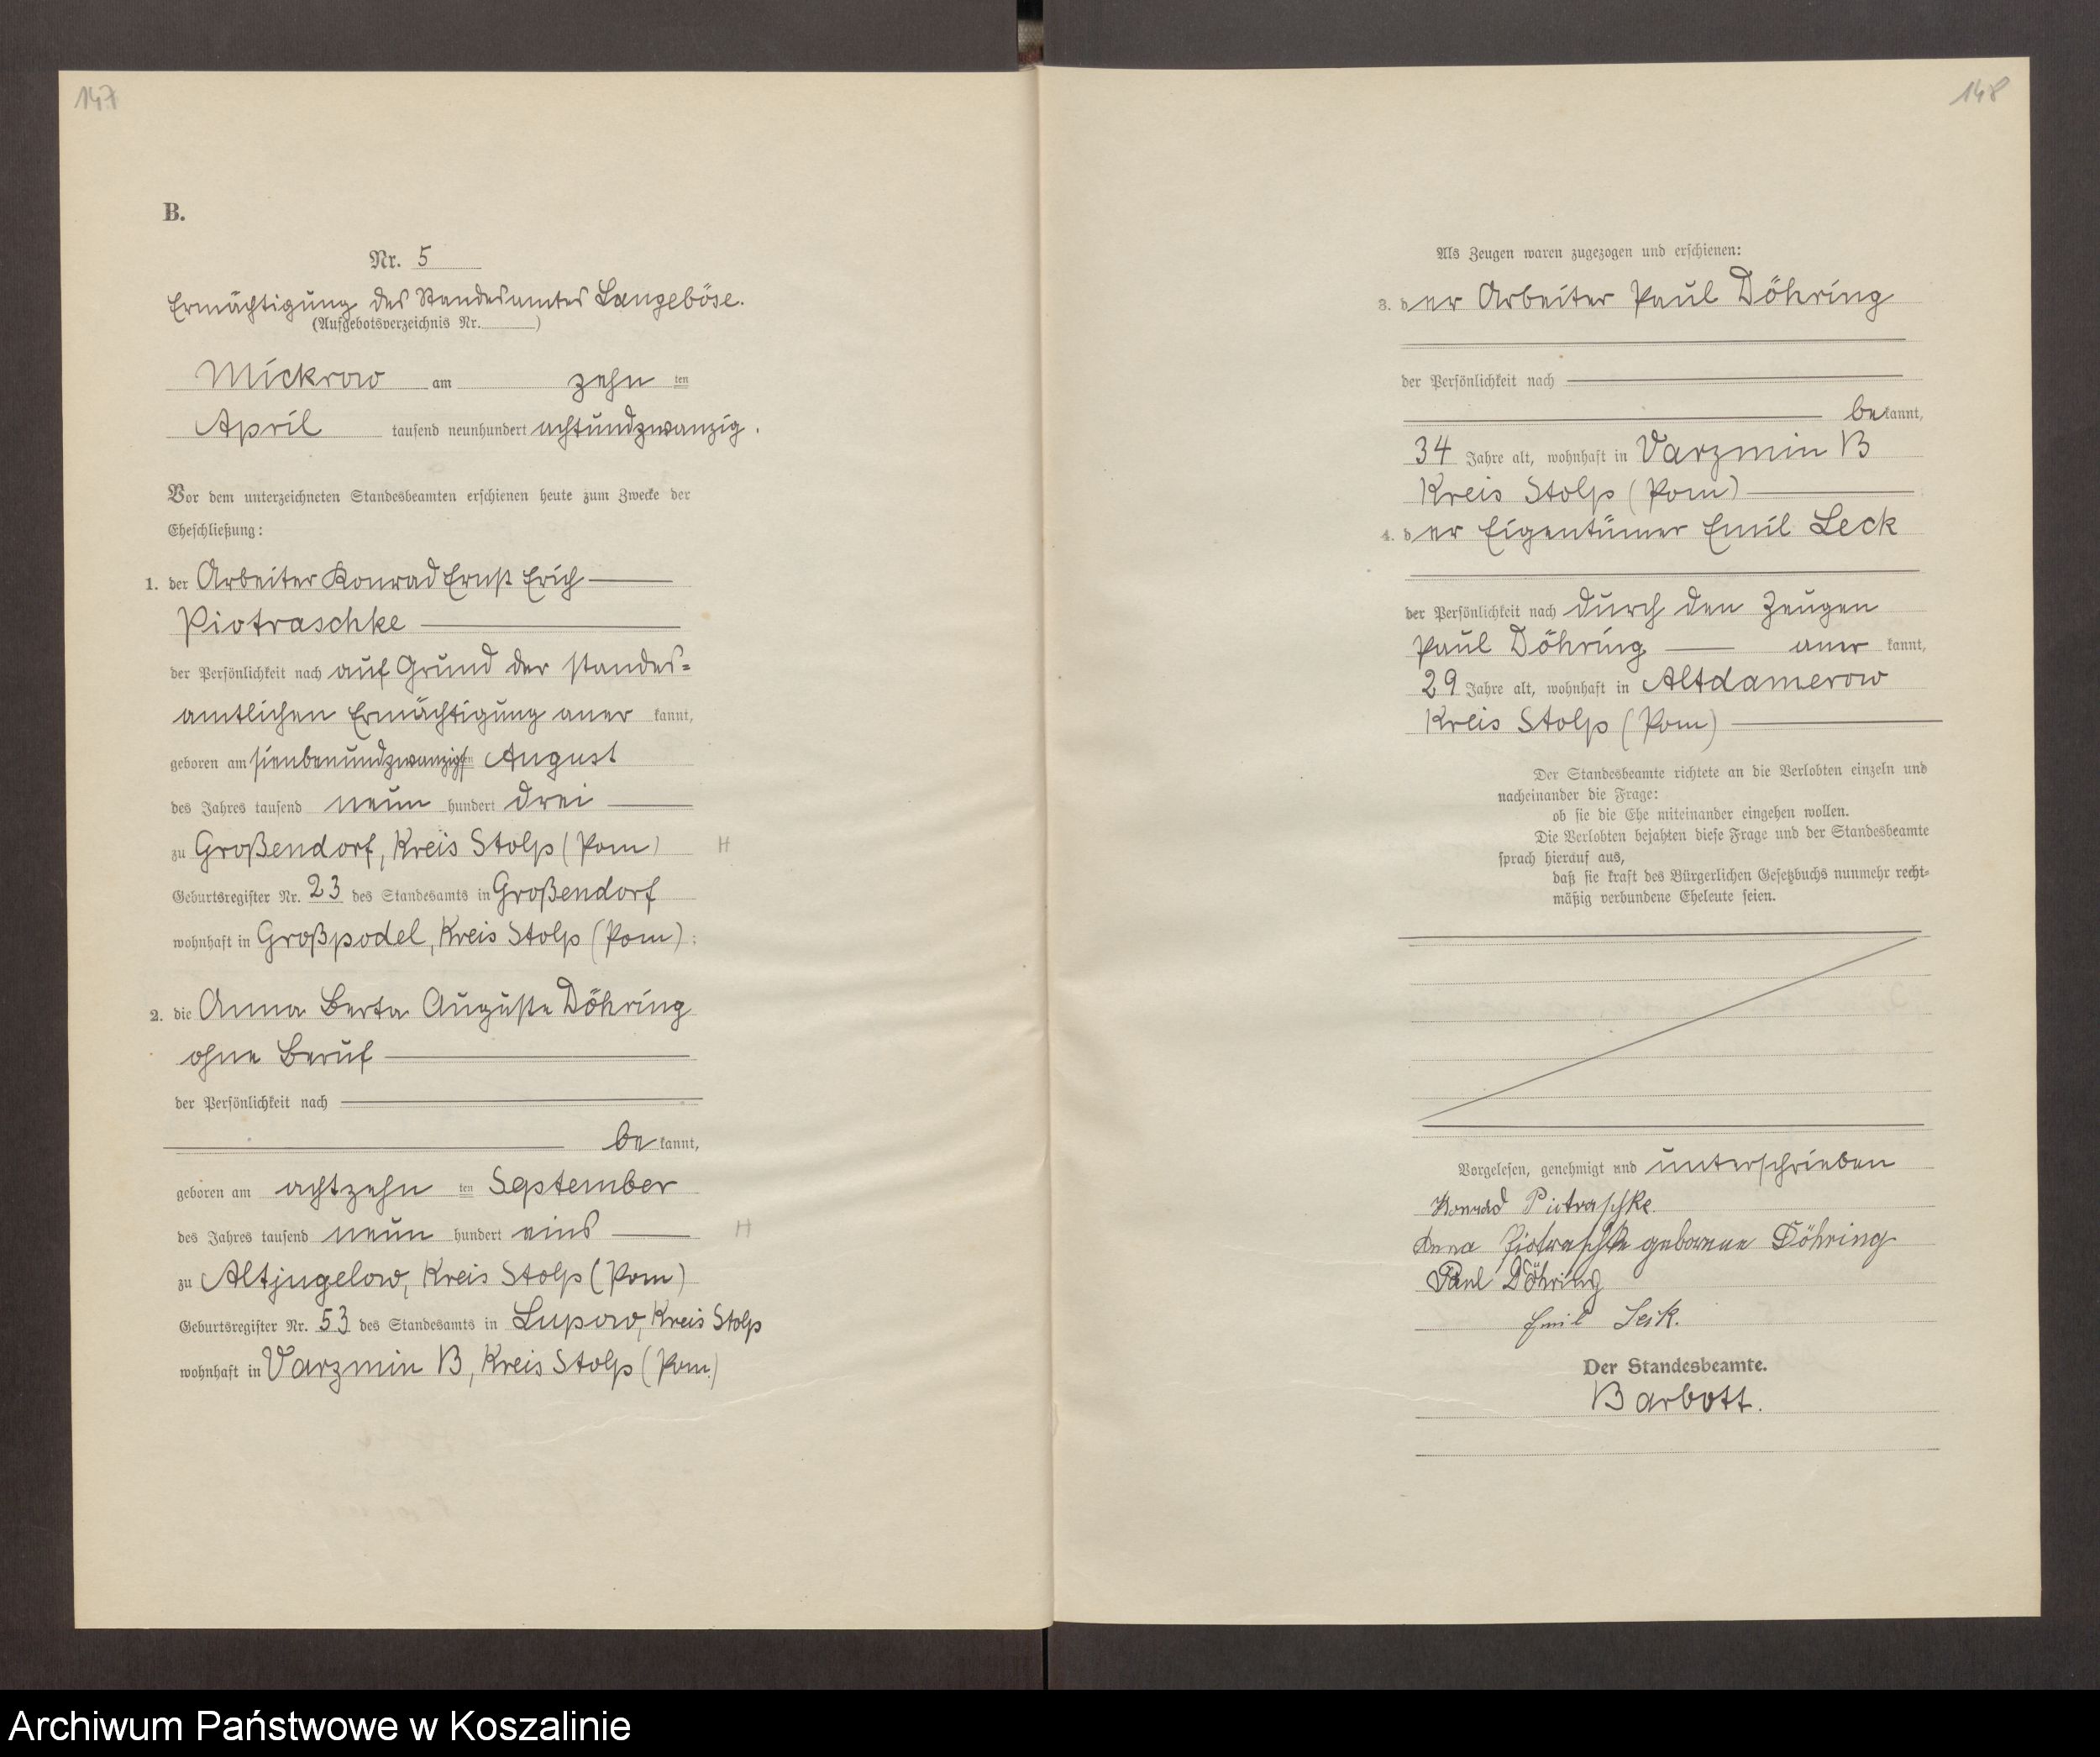 147
B.
Nr. 5
Ermächtigung des Standesamtes Langeböse.
(Aufgebotsverzeichnis Nr. )
Mickrow am zehn ten
April tausend neunhundert achtundzwanzig.
Vor dem unterzeichneten Standesbeamten erschienen heute zum Zwecke der
Eheschließung:
1. der Arbeiter Konrad Ernst Erich
Piotraschke
der Persönlichkeit nach auf Grund der standes=
amtlichen Ermächtigung aner kannt,
geboren am sienbenundzwanzigsten August
des Jahres tausend neun hundert drei
zu Großendorf, Kreis Stolp (Pom) H
Geburtsregister Nr. 23 des Standesamts in Großendorf
wohnhaft in Großpodel, Kreis Stolp (Pom) ;
2. die Anna Berta Auguste Döhring
ohne Beruf
der Persönlichkeit nach
be kannt,
geboren am achtzehn ten September
des Jahres tausend neun hundert eins H
zu Altjugelow, Kreis Stolp (Pom)
Geburtsregister Nr. 53 des Standesamts in Lupow, Kreis Stolp
wohnhaft in Varzmin B, Kreis Stolp (Pom.)
148
Als Zeugen waren zugezogen und erschienen:
3. der Arbeiter Paul Döhring
der Persönlichkeit nach
be kannt,
34 Jahre alt, wohnhaft in Varzmin B
Kreis Stolp (Pom)
4. der Eigentümer Emil Leck
der Persönlichkeit nach durch den Zeugen
Paul Döhring aner kannt,
29 Jahre alt, wohnhaft in Altdamerow
Kreis Stolp (Pom)
Der Standesbeamte richtete an die Verlobten einzeln und
nacheinander die Frage:
ob sie die Ehe miteinander eingehen wollen.
Die Verlobten bejahten diese Frage und der Standesbeamte
sprach hierauf aus,
daß sie kraft des Bürgerlichen Gesetzbuchs nunmehr recht=
mäßig verbundene Eheleute seien.
Vorgelesen, genehmigt und unterschrieben
Konrad Piotraschke.
Anna Piotraschke geborene Döhring
Paul Döhring
Emil Leck.
Der Standesbeamte.
Barbott.
Archiwum Państwowe w Koszalinie